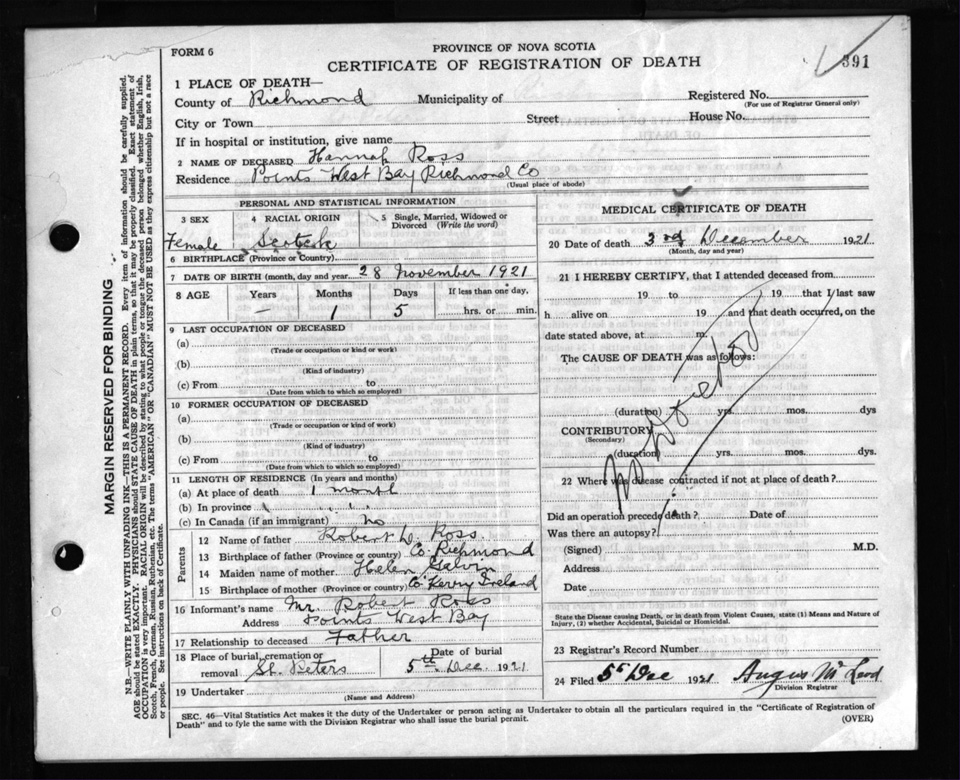 FORM 6
PROVINCE OF NOVA SCOTIA
CERTIFICATE OF REGISTRATION OF DEATH
391
1 PLACE OF DEATH—
County of Richmond Municipality of
Registered No.
(For use of Registrar General only)
City or Town Street House No.
If in hospital or institution, give name
2 NAME OF DECEASED Hannah Ross
Residence Points West Bay Richmond Co
(Usual place of abode)
PERSONAL AND STATISTICAL INFORMATION
3 SEX 4 RACIAL ORIGIN 5 Single, Married, Widowed or Divorced (Write the word)
Female Scotch
6 BIRTHPLACE (Province or Country)
7 DATE OF BIRTH (month, day and year) 28 November 1921
8 AGE Years Months Days If less than one day,
— 1 5 hrs. or min.
9 LAST OCCUPATION OF DECEASED
(a)
(Trade or occupation or kind of work)
(b)
(Kind of industry)
(c) From to
(Date from which to which so employed)
10 FORMER OCCUPATION OF DECEASED
(a)
(Trade or occupation or kind of work)
(b)
(Kind of industry)
(c) From to
(Date from which to which so employed)
11 LENGTH OF RESIDENCE (In years and months)
(a) At place of death 1 month
(b) In province
(c) In Canada (if an immigrant) No
Parents
12 Name of father Robert D. Ross
13 Birthplace of father (Province or country) Co. Richmond
14 Maiden name of mother Helen Galvin
15 Birthplace of mother (Province or country) Co. Kerry Ireland
16 Informant's name Mr. Robert Ross
Address Points West Bay
17 Relationship to deceased Father
18 Place of burial, cremation or removal St. Peters
Date of burial 5th Dec. 1921
19 Undertaker
(Name and Address)
MEDICAL CERTIFICATE OF DEATH
20 Date of death 3rd December 1921
(Month, day and year)
21 I HEREBY CERTIFY, that I attended deceased from
19 to 19 that I last saw
h alive on 19 and that death occurred, on the
date stated above, at m.
The CAUSE OF DEATH was as follows:
No Doctor
(duration) yrs. mos. dys
CONTRIBUTORY
(Secondary)
(duration) yrs. mos. dys.
22 Where was disease contracted if not at place of death?
Did an operation precede death? Date of
Was there an autopsy?
(Signed) M.D.
Address
Date
State the Disease causing Death, or in death from Violent Causes, state (1) Means and Nature of
Injury, (2) whether Accidental, Suicidal or Homicidal.
23 Registrar's Record Number
24 Filed 5th Dec 1921 Angus McLeod
Division Registrar
SEC. 46—Vital Statistics Act makes it the duty of the Undertaker or person acting as Undertaker to obtain all the particulars required in the "Certificate of Registration of
Death" and to fyle the same with the Division Registrar who shall issue the burial permit.
(OVER)
MARGIN RESERVED FOR BINDING
N.B.—WRITE PLAINLY WITH UNFADING INK—THIS IS A PERMANENT RECORD. Every item of information should be carefully supplied.
AGE should be stated EXACTLY. PHYSICIANS should STATE CAUSE OF DEATH in plain terms, so that it may be properly classified. Exact statement of
OCCUPATION is very important. RACIAL ORIGIN will be described by stating to what people or tongue the deceased person belonged whether English, Irish,
Scotch, French, German, Russian, Ruthenian, etc. The terms "AMERICAN" OR "CANADIAN" MUST NOT BE USED as they express citizenship but not a race
or people. See instructions on back of Certificate.